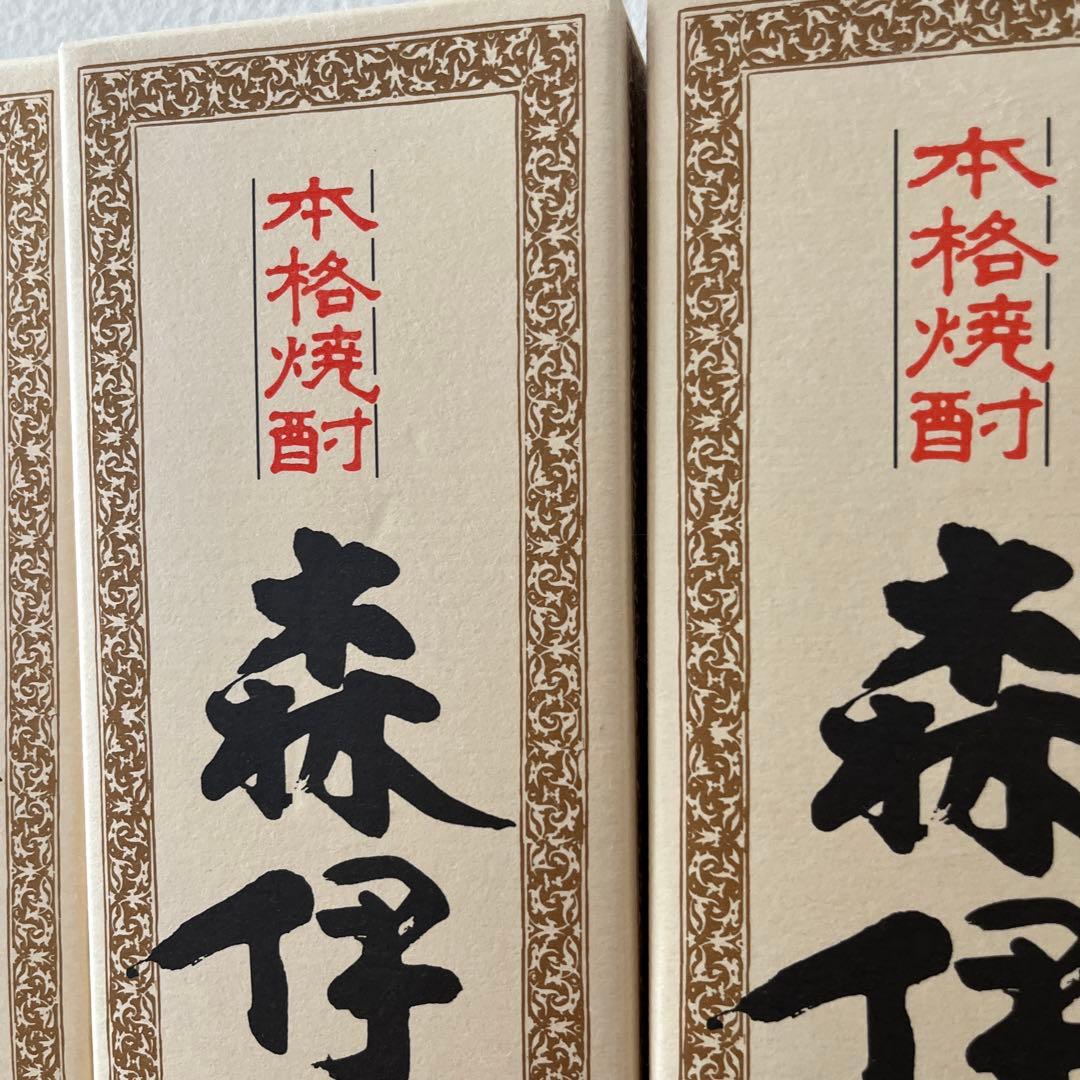 本格焼酎
森伊
本格焼酎
森伊